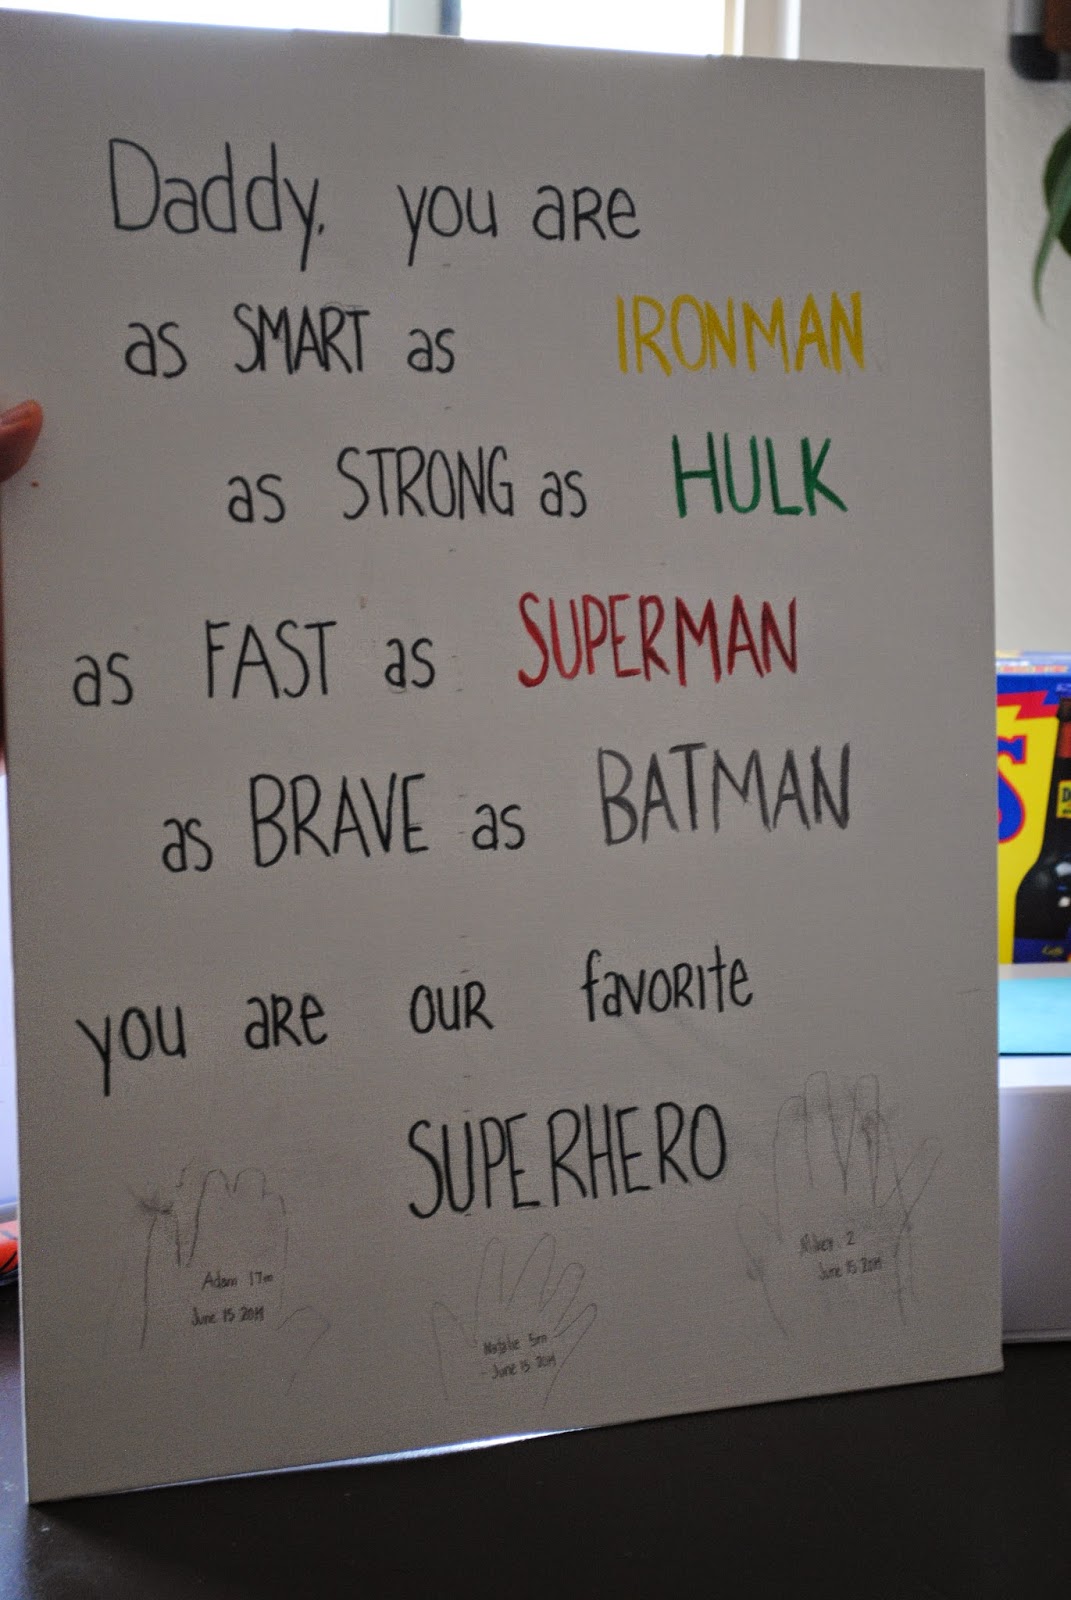 Daddy, you are
as SMART as IRONMAN
as STRONG as HULK
as FAST as SUPERMAN
as BRAVE as BATMAN
you are our favorite
SUPERHERO
Adam 17m
June 15 2014
Natalie 5m
June 15 2014
2
June 15 2014